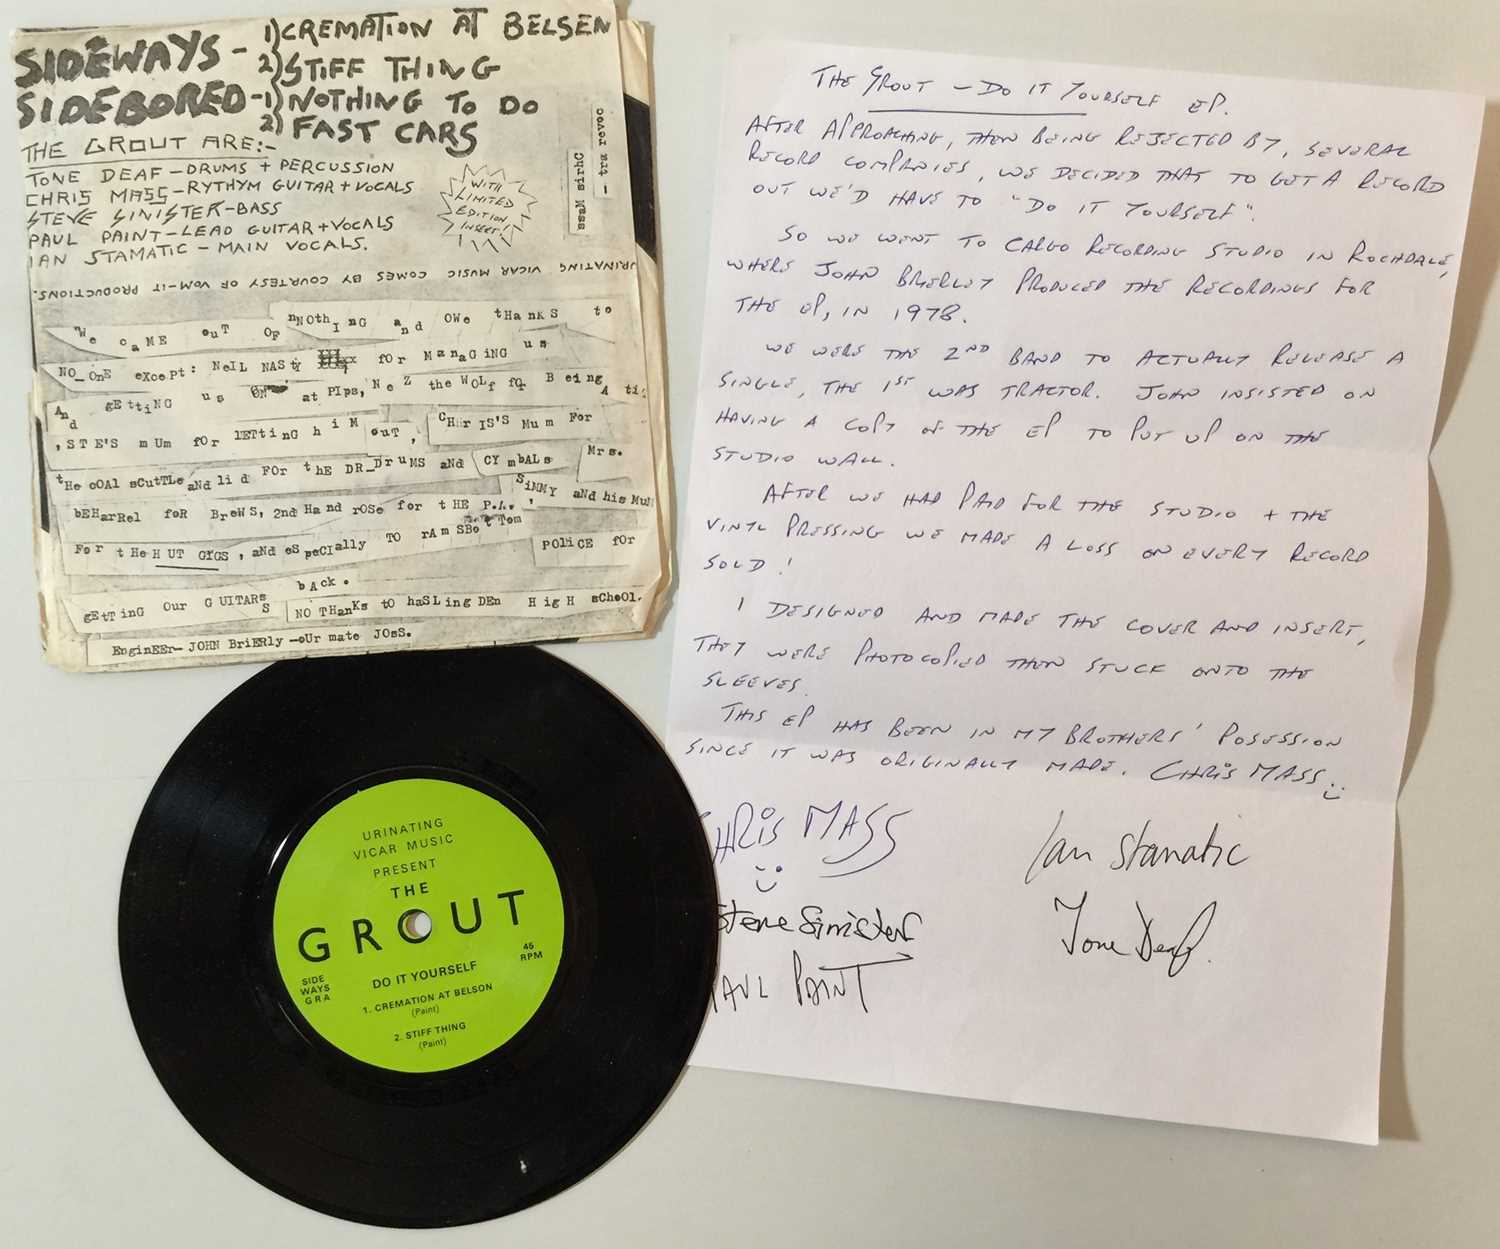 SIDEWAYS - 1) CREMATION AT BELSEN
2) STIFF THING
SIDEBORED - 1) NOTHING TO DO
2) FAST CARS
THE GROUT ARE:-
TONE DEAF - DRUMS + PERCUSSION
CHRIS MASS - RYTHYM GUITAR + VOCALS
STEVE SINISTER - BASS
PAUL PAINT - LEAD GUITAR + VOCALS
IAN STAMATIC - MAIN VOCALS.
WITH
LIMITED
EDITION
INSERT!
Chris Mass
- trz revoc
URINATING VICAR MUSIC COMES BY COURTESY OF VOM-IT PRODUCTIONS.
"We caME ouT OF nNOthING and OWe tHaNKS to
NO_OnE eXcePt: NeIL NAStY for MaNaGiNG us
And gEttiNG us ON at PIPs, NeZ the WOLf fo Being A ti
,STE'S mUm fOr lETtinG hiM ouT, CHrIS'S Mum For
tHe cOAl sCutTLe aNd lid FOr tHE DR_DrUMS aNd CYmbALs Mrs.
bEHarrel foR BreWS, 2nd Hand rOSe for tHE P.A., SiMMY aNd his MuM
For tHe HUT GYGS, aNd eSpeCIally TO rAmSBotTom POliCE fOr
gEtTinG Our GUITARs back.
NO THanKs tO haSLingDEn HigH sChoOl.
EnginEEr- JOHN BriERly -oUr mate JOsS.
URINATING
VICAR MUSIC
PRESENT
THE
GROUT
SIDE
WAYS
GRA
45
RPM
DO IT YOURSELF
1. CREMATION AT BELSON
(Paint)
2. STIFF THING
(Paint)
THE GROUT - DO IT YOURSELF EP.
AFTER APPROACHING, THEN BEING REJECTED BY, SEVERAL
RECORD COMPANIES, WE DECIDED THAT TO GET A RECORD
OUT WE'D HAVE TO "DO IT YOURSELF".
SO WE WENT TO CARGO RECORDING STUDIO IN ROCHDALE,
WHERE JOHN BRIERLEY PRODUCED THE RECORDINGS FOR
THE EP, IN 1978.
WE WERE THE 2ND BAND TO ACTUALLY RELEASE A
SINGLE, THE 1ST WAS TRACTOR. JOHN INSISTED ON
HAVING A COPY OF THE EP TO PUT UP ON THE
STUDIO WALL.
AFTER WE HAD PAID FOR THE STUDIO + THE
VINYL PRESSING WE MADE A LOSS ON EVERY RECORD
SOLD!
I DESIGNED AND MADE THE COVER AND INSERT,
THEY WERE PHOTOCOPIED THEN STUCK ONTO THE
SLEEVES.
THIS EP HAS BEEN IN MY BROTHERS' POSESSION
SINCE IT WAS ORIGINALLY MADE. CHRIS MASS
CHRIS MASS
Ian Stamatic
Steve Sinister
Tone Deaf.
PAUL PAINT